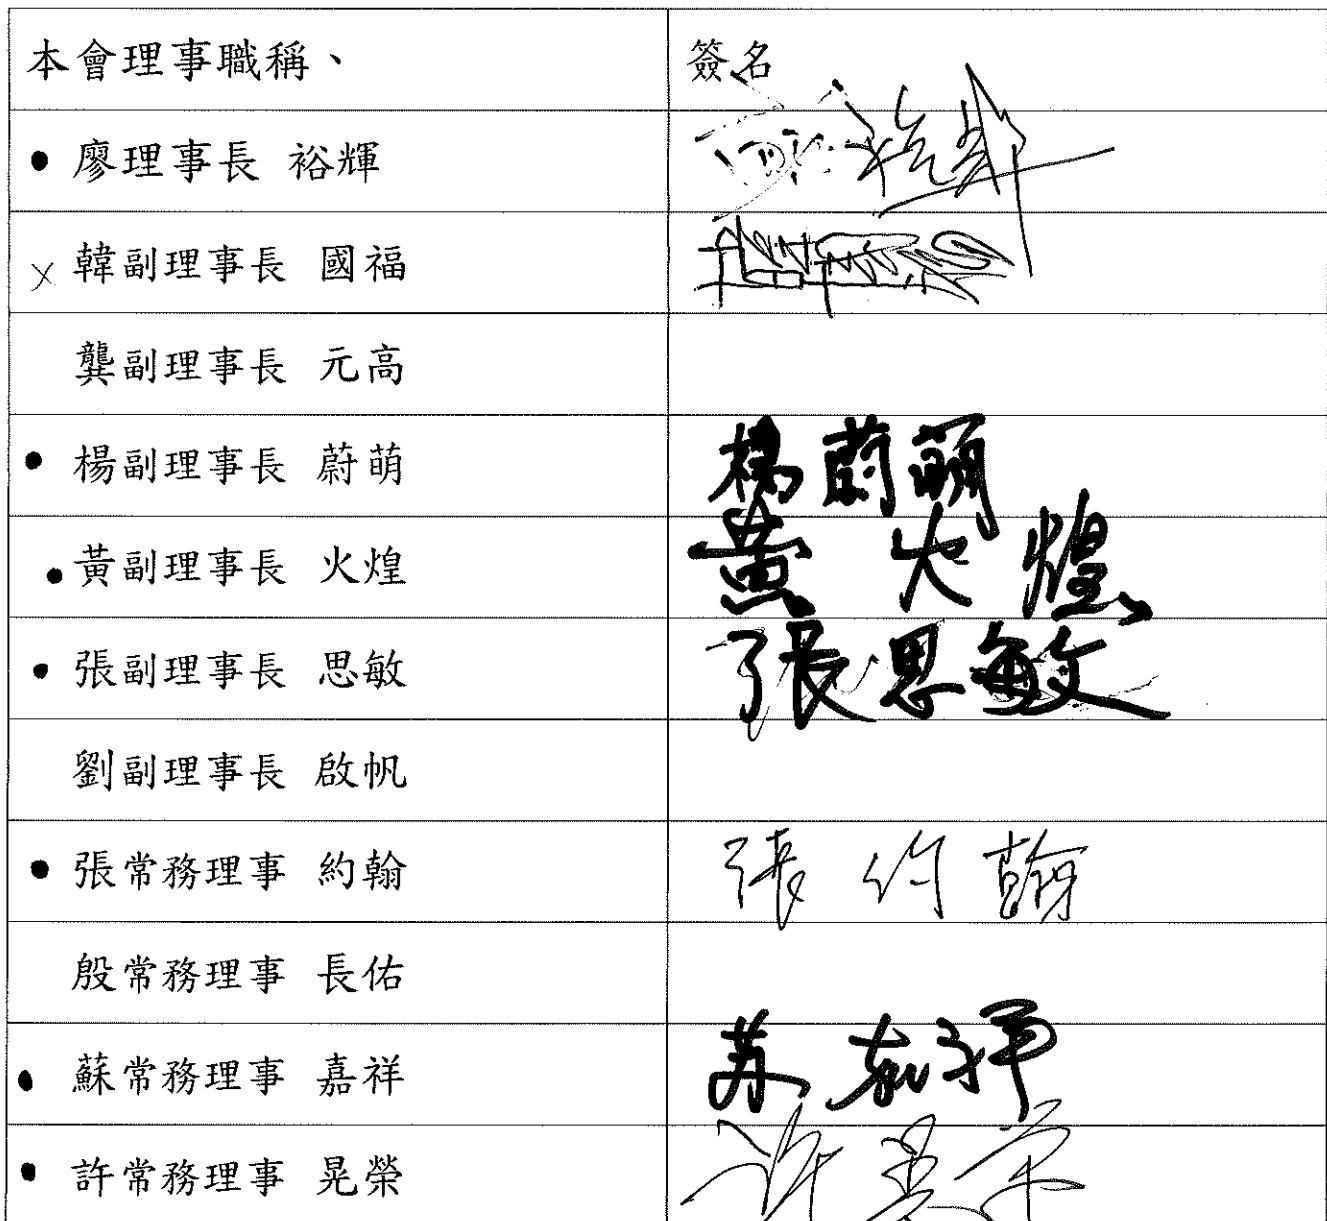 本會理事職稱、 簽名
• 廖理事長 裕輝
× 韓副理事長 國福
龔副理事長 元高
• 楊副理事長 蔚萌 楊蔚萌
• 黃副理事長 火煌 黃火煌
• 張副理事長 思敏 張思敏
劉副理事長 啟帆
• 張常務理事 約翰 張約翰
殷常務理事 長佑
• 蘇常務理事 嘉祥
• 許常務理事 晃榮 許晃荣